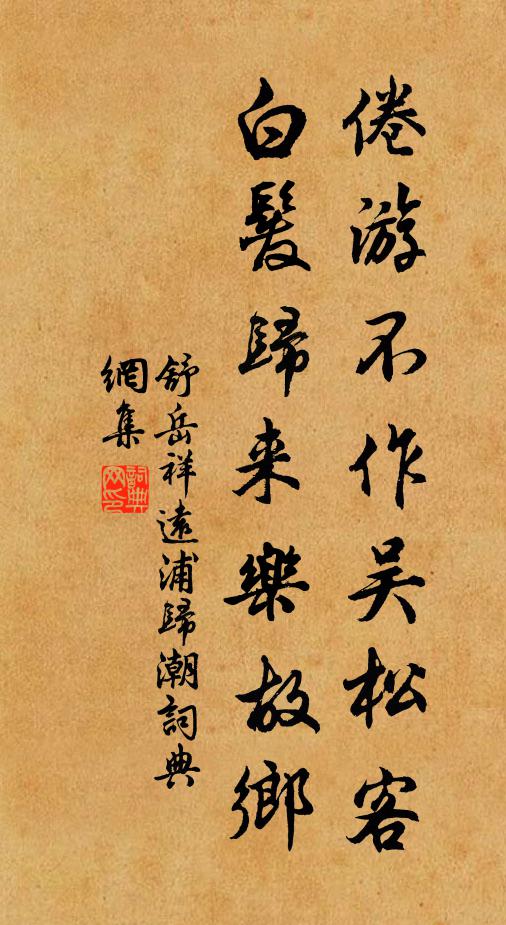 倦游不作吴松客
白髮歸来樂故鄉
舒岳祥遠浦歸潮詞典
網集
詞典
网印